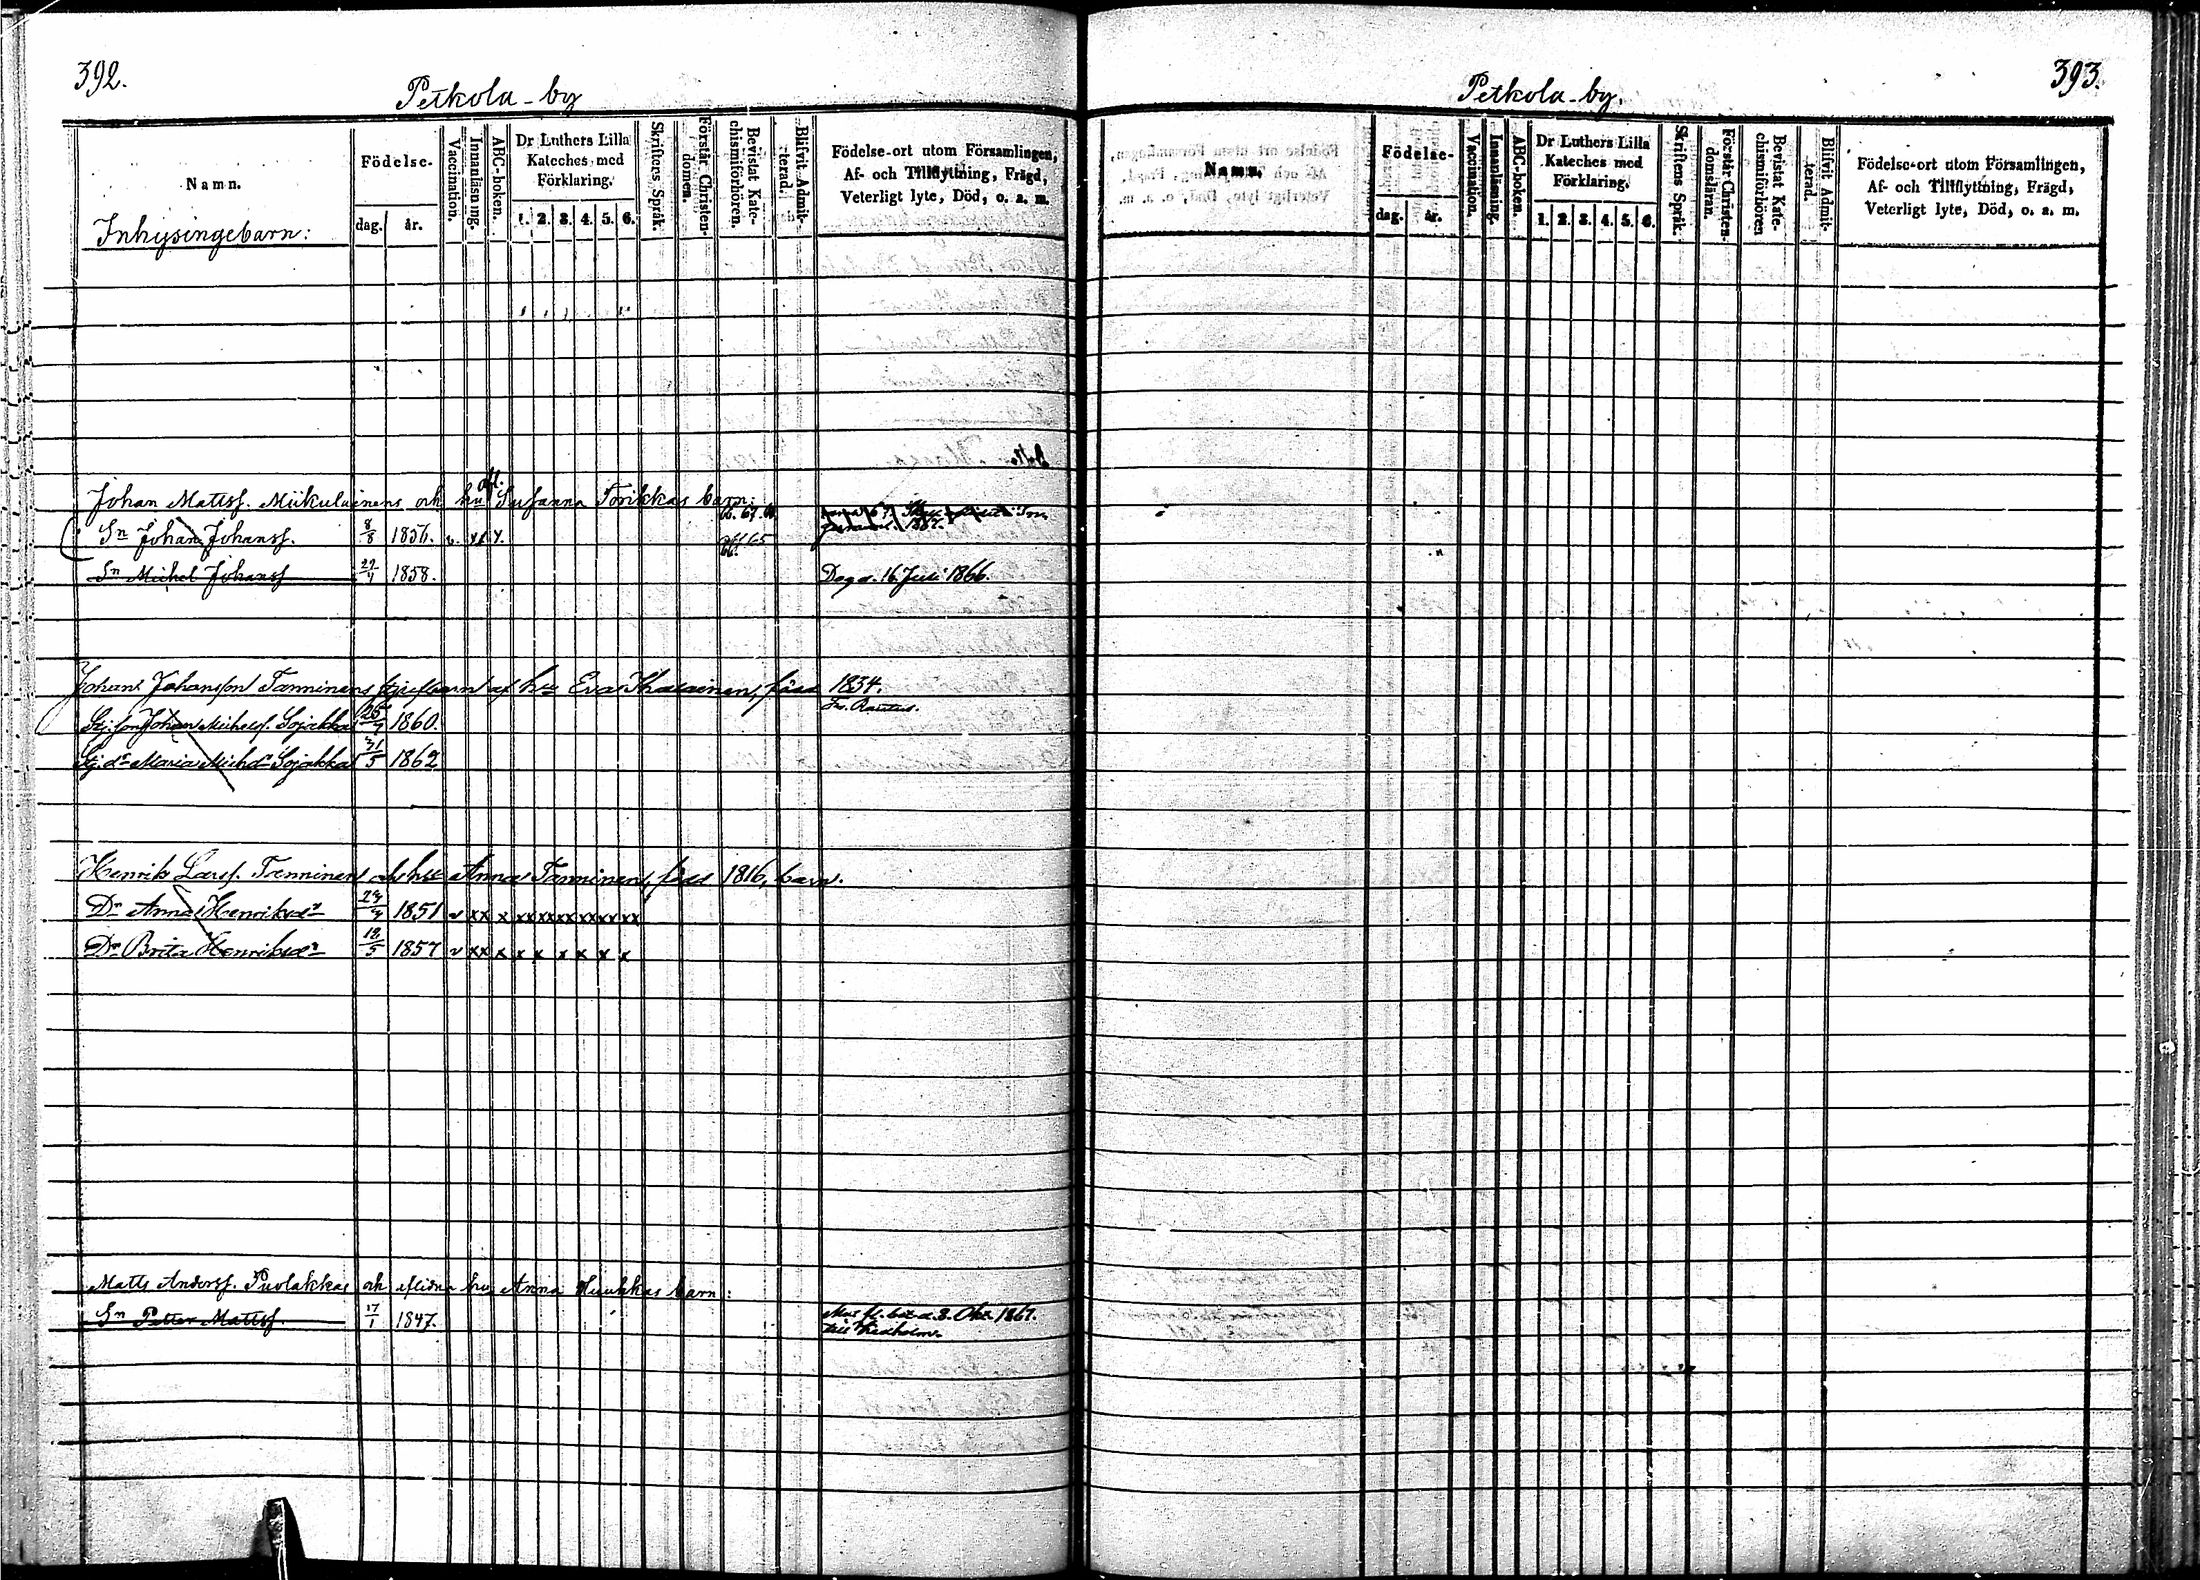 392.
Petkola-by
Namn.
Inhysingebarn:
Födelse-
dag. år.
Vaccination.
Innanläsning.
ABC-boken.
Dr Luthers Lilla
Kateches med
Förklaring.
1. 2. 3. 4. 5. 6.
Skriftens Språk.
Förstår Christen-
domen.
Bevistat Kate-
chismiförhören.
Blifvit Admit-
terad.
Födelse-ort utom Församlingen,
Af- och Tillflyttning, Frägd,
Veterligt lyte, Död, o. a. m.
Johan Mattss. och hu Susanna Torikkas barn:
Sn Johan Johanss. 8/8 1856. v.
Sn Michel Johanss 1858. Död d. 16 Juli 1866.
Johan Johansson Tanninens af hu Eva född 1834.
Johan Michelss. Sojakka 1860.
Maria Michdr Sojakka 31/5 1862
Henrik Larss. Tanninens och hu Anna Tanninens, född 1816, barn.
Dr Anna Henriksdr 1851 v xx x xx xx xx xx xx xx
Dr Brita Henriksdr 12/5 1857 v xx x x x x x x x
Matts Anderss. Puolakkas och aflidna hu Anna Huuhkas barn:
Sn Petter Mattss. 17/1 1847. d. 3. Okt. 1867.
till
393.
Petkola-by.
Namn.
Födelse-
dag. år.
Vaccination.
Innanläsning.
ABC-boken.
Dr Luthers Lilla
Kateches med
Förklaring.
1. 2. 3. 4. 5. 6.
Skriftens Språk.
Förstår Christen-
domsläran.
Bevistat Kate-
chismiförhören
Blifvit Admit-
terad.
Födelse-ort utom Församlingen,
Af- och Tillflyttning, Frägd,
Veterligt lyte, Död, o. a. m.